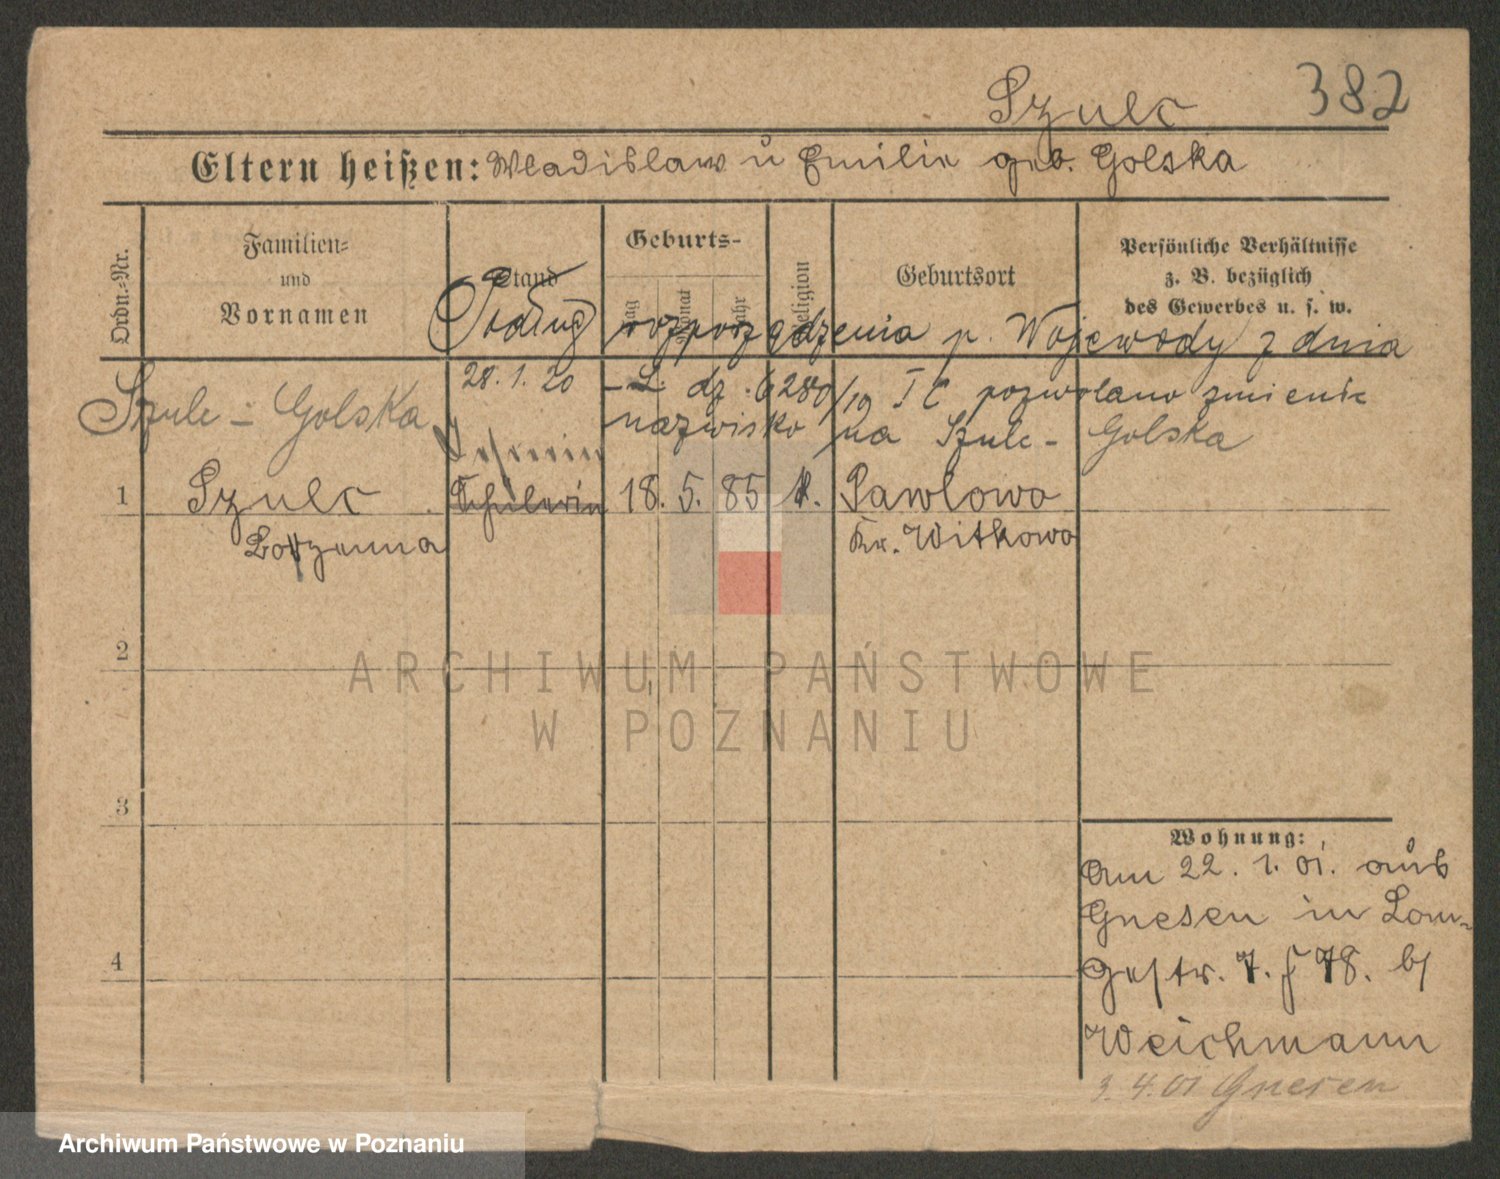 Szulc 382
Eltern heißen: Wladislaw u Emilie geb. Golska
Ordn.-Nr.
Familien-
und
Vornamen
Stand
Geburts-
Tag
Monat
Jahr
Religion
Geburtsort
Persönliche Verhältnisse
z. B. bezüglich
des Gewerbes u. s. w.
Podług rozporządzenia p. Wojewody z dnia
28.1.20 - L. dz. 6280/19 I C pozwolano zmienić
nazwisko na Szulc - Golska
Szulc - Golska
1 Szulc Schülerin 18. 5. 85 k. Pawlowo
Bożenna Kr. Witkowo
2
3
4
Wohnung:
Am 22. 1. 01. aus
Gnesen in Lan-
gestr. 7. f 78. b/
Weichmann
3. 4. 01 Gnesen
ARCHIWUM PAŃSTWOWE
W POZNANIU
Archiwum Państwowe w Poznaniu